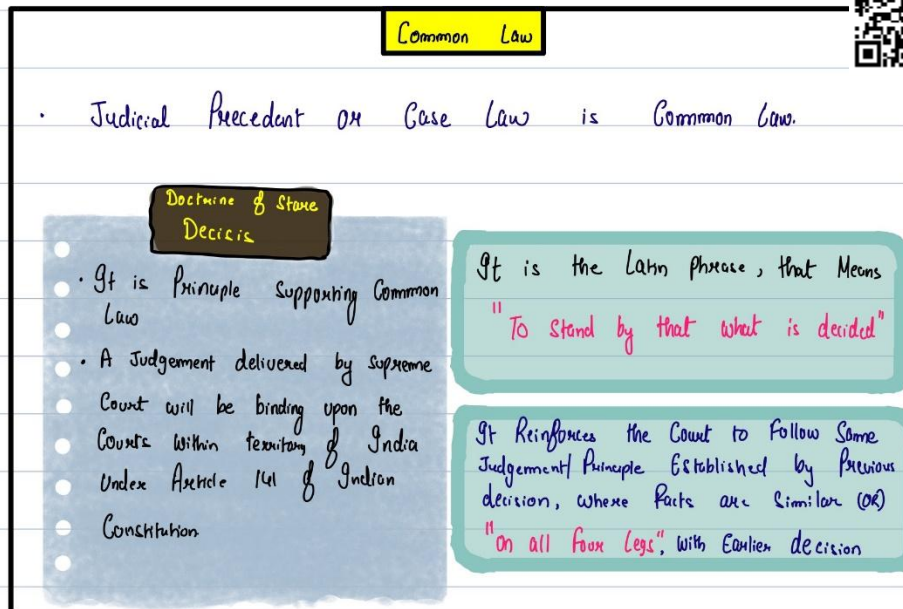 Common Law
· Judicial Precedent or Case Law is Common Law.
Doctrine of Stare
Decisis
· It is Principle Supporting Common
Law
· A Judgement delivered by supreme
Court will be binding upon the
Courts within territory of India
Under Article 141 of Indian
Constitution
It is the Latin phrase, that Means
"To Stand by that what is decided"
It Reinforces the Court to Follow Same
Judgement/Principle Established by Previous
decision, where Facts are Similar (OR)
"on all four legs", with Earlier decision